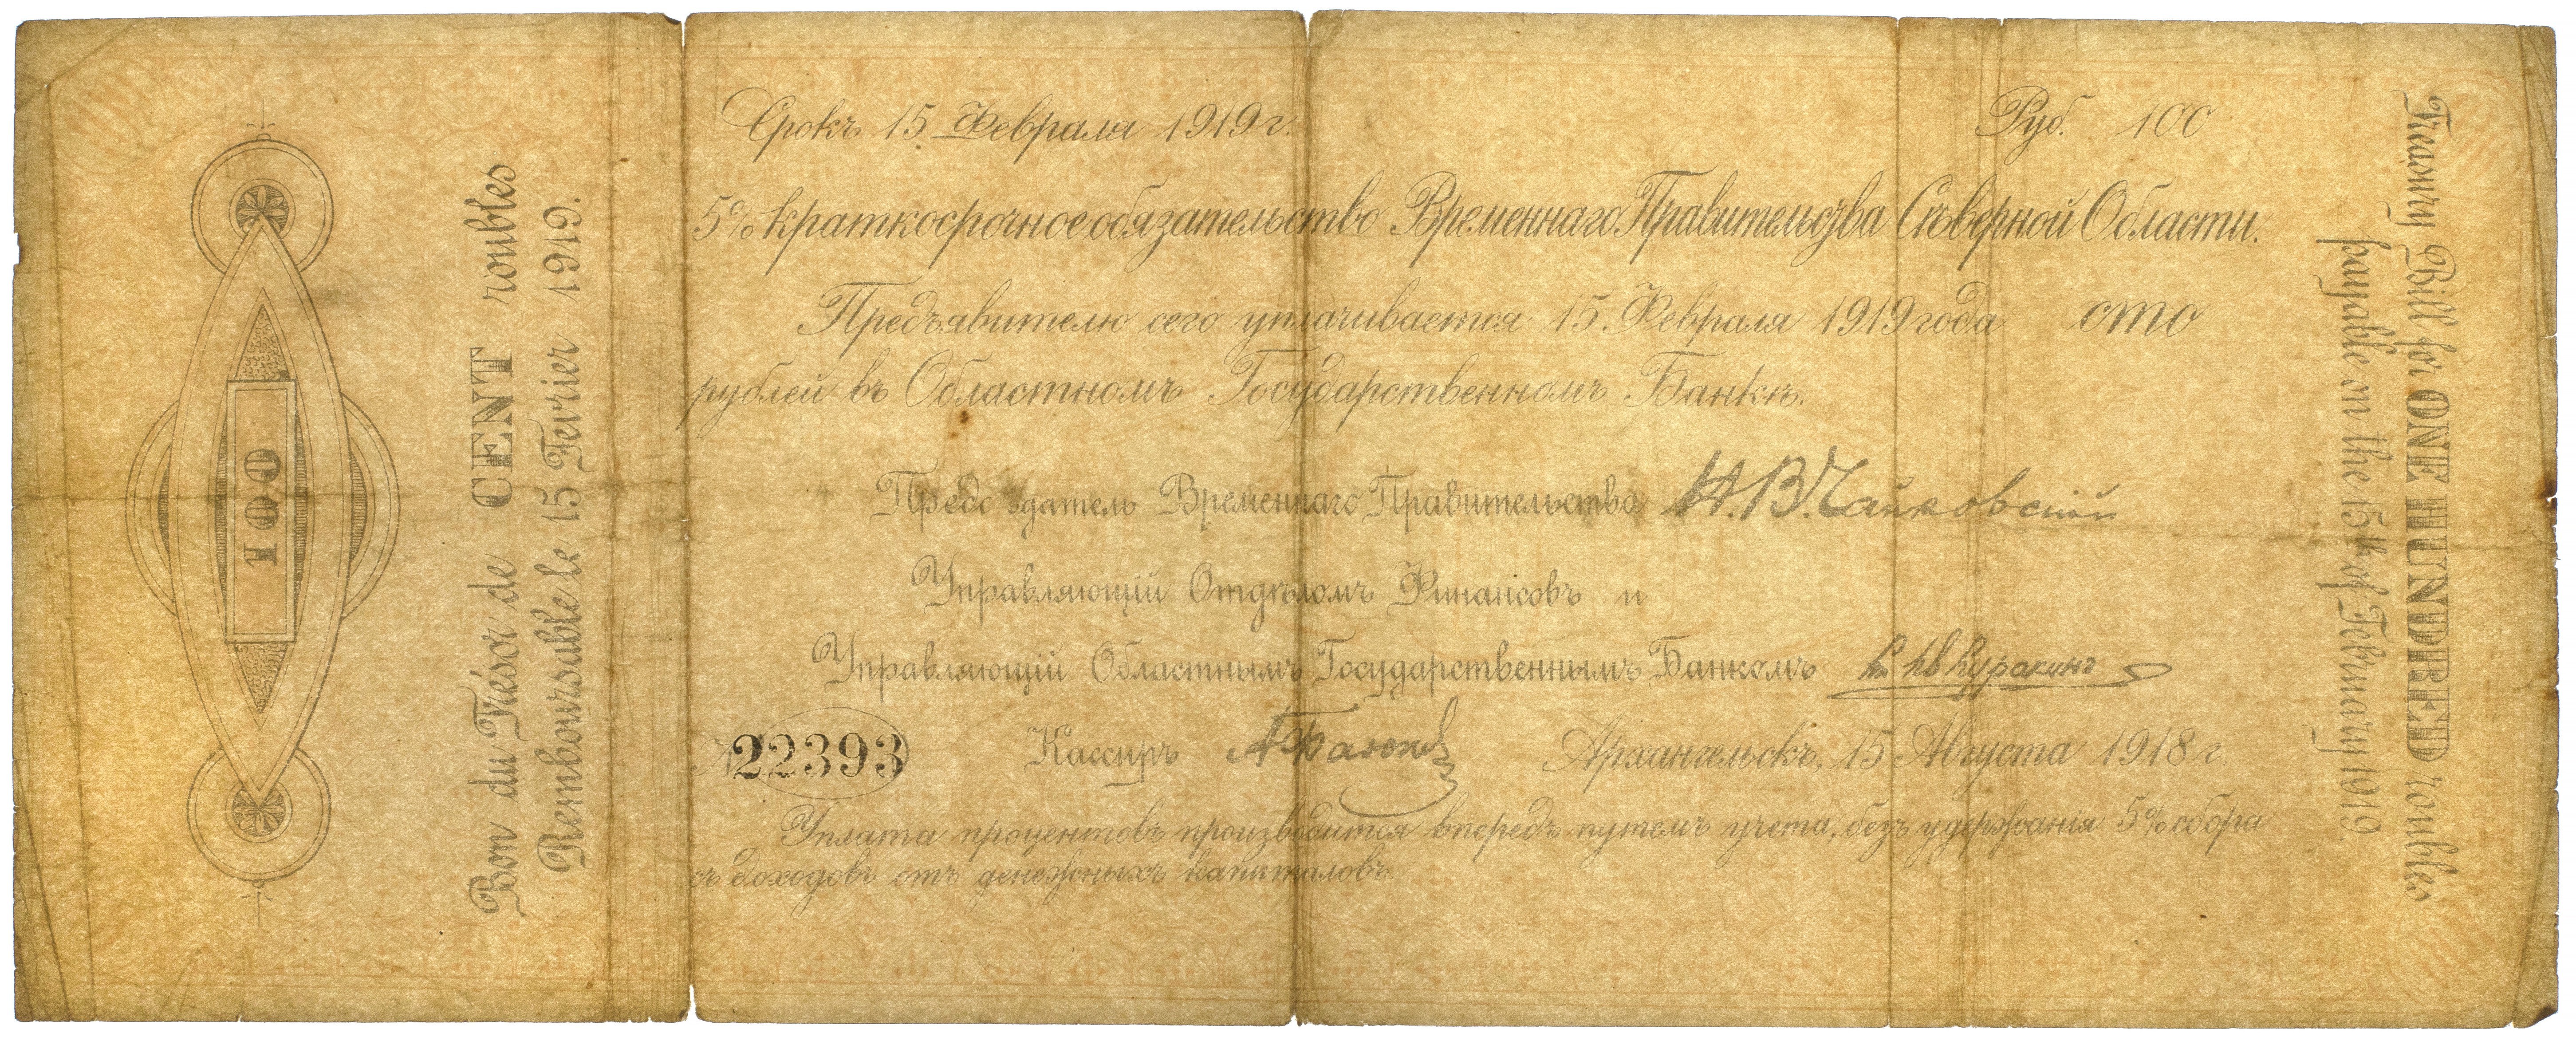 100
Bon du Trésor de CENT roubles
Remboursable le 15 Fevrier 1919.
Срокъ 15 Февраля 1919 г.
Руб. 100
5% краткосрочное обязательство Временнаго Правительства Сѣверной Области.
Предъявителю сего уплачивается 15 Февраля 1919 года сто
рублей въ Областномъ Государственномъ Банкѣ.
Предсѣдатель Временнаго Правительства Н.В. Чайковскій
Управляющій Отдѣломъ Финансовъ и
Управляющій Областнымъ Государственнымъ Банкомъ Кн. Ив Куракинъ
№ 22393 Кассиръ Архангельскъ, 15 Августа 1918 г.
Уплата процентовъ производится впередъ путемъ учета, безъ удержанія 5% сбора
съ доходовъ отъ денежныхъ капиталовъ.
Treasury Bill for ONE HUNDRED roubles
payable on the 15th of February 1919.